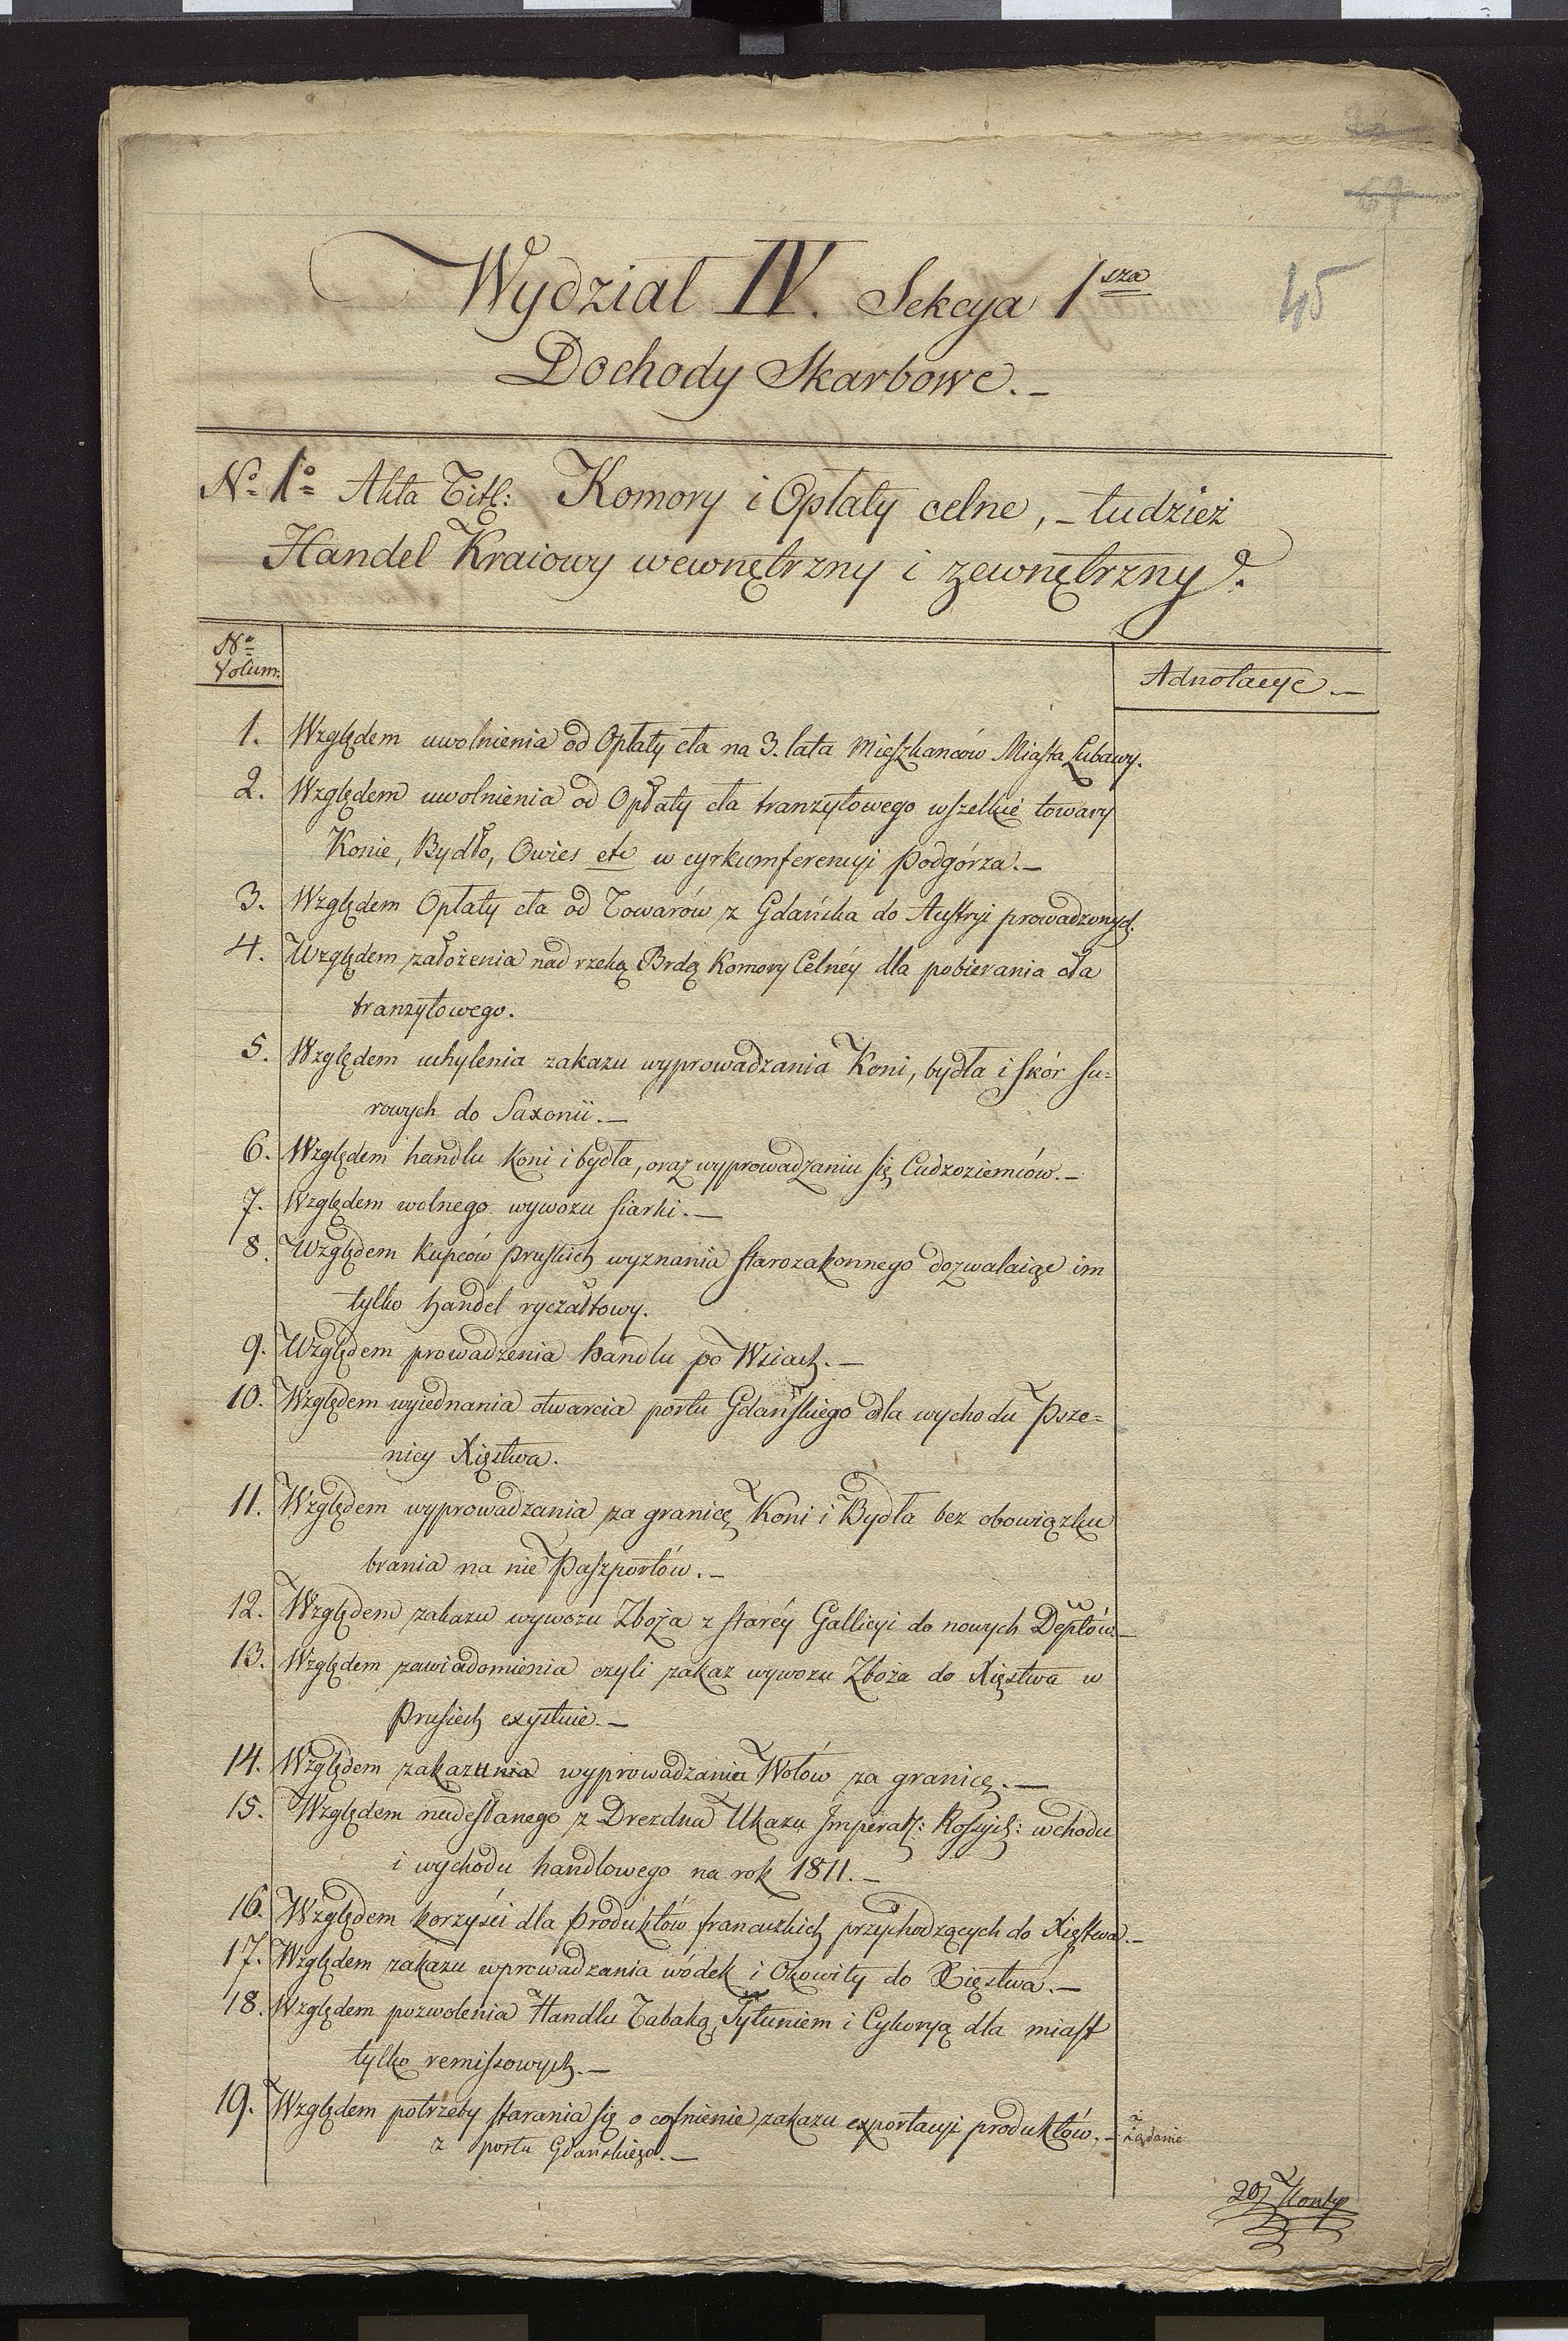 67
45
Wydział IV. Sekcya 1sza
Dochody Skarbowe.–
No 1o Akta Titl: Komory i Opłaty celne, – tudzież
Handel Kraiowy wewnętrzny i zewnętrzny.
No
Volum:
Adnotacye.–
1. Względem uwolnienia od Opłaty cła na 3. lata Mieszkanców Miasta Lubawy.
2. Względem uwolnienia od Opłaty cła tranzytowego wszelkie towary
Konie, Bydło, Owies etc w cyrkumferencyi Podgórza.–
3. Względem Opłaty cła od Towarów z Gdańska do Austryi prowadzonych.
4. Względem założenia nad rzeką Brdą Komory Celnéy dla pobierania cła
tranzytowego.
5. Względem uchylenia zakazu wyprowadzania Koni, bydła i skór su=
rowych do Saxonii.–
6. Względem handlu Koni i bydła, oraz wyprowadzaniu się Cudzoziemców.–
7. Względem wolnego wywozu siarki.–
8. Względem Kupców Pruskich wyznania starozakonnego dozwalaiąc im
tylko handel ryczałtowy.
9. Względem prowadzenia handlu po Wsiach.–
10. Względem wyiednania otwarcia portu Gdańskiego dla wychodu Psze=
nicy Xięstwa.
11. Względem wyprowadzania za granicę Koni i Bydła bez obowiązku
brania na nie Paszportów.–
12. Względem zakazu wywozu Zboża z staréy Gallicyi do nowych Deptów.–
13. Względem zawiadomienia czyli zakaz wywozu Zboża do Xięstwa w
Prusiech exystuie.–
14. Względem zakazunia wyprowadzania Wołów za granicę.–
15. Względem nadesłanego z Drezdna Ukazu Imperat: Rossyis: wchodu
i wychodu handlowego na rok 1811.–
16. Względem korzyści dla Produktów francuzkich przychodzących do Xięstwa.–
17. Względem zakazu wprowadzania wódek i Okowity do Xięstwa.–
18. Względem pozwolenia Handlu Tabaką, Tytuniem i Cykoryą dla miast
tylko remissowych.–
19. Względem potrzeby starania się o cofnienie zakazu exportacyi produktów.–
z portu Gdańskiego.–
20